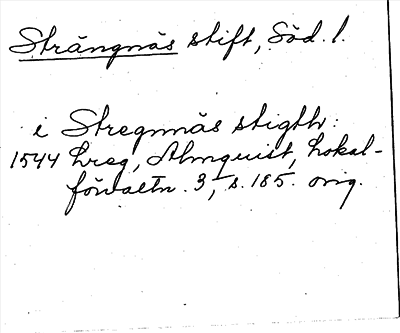 Strängnäs stift, Söd. l.
i Stregnnäs stigth:
1544 hreg, Almquist, Lokal-
förvaltn. 3, s. 185. orig.